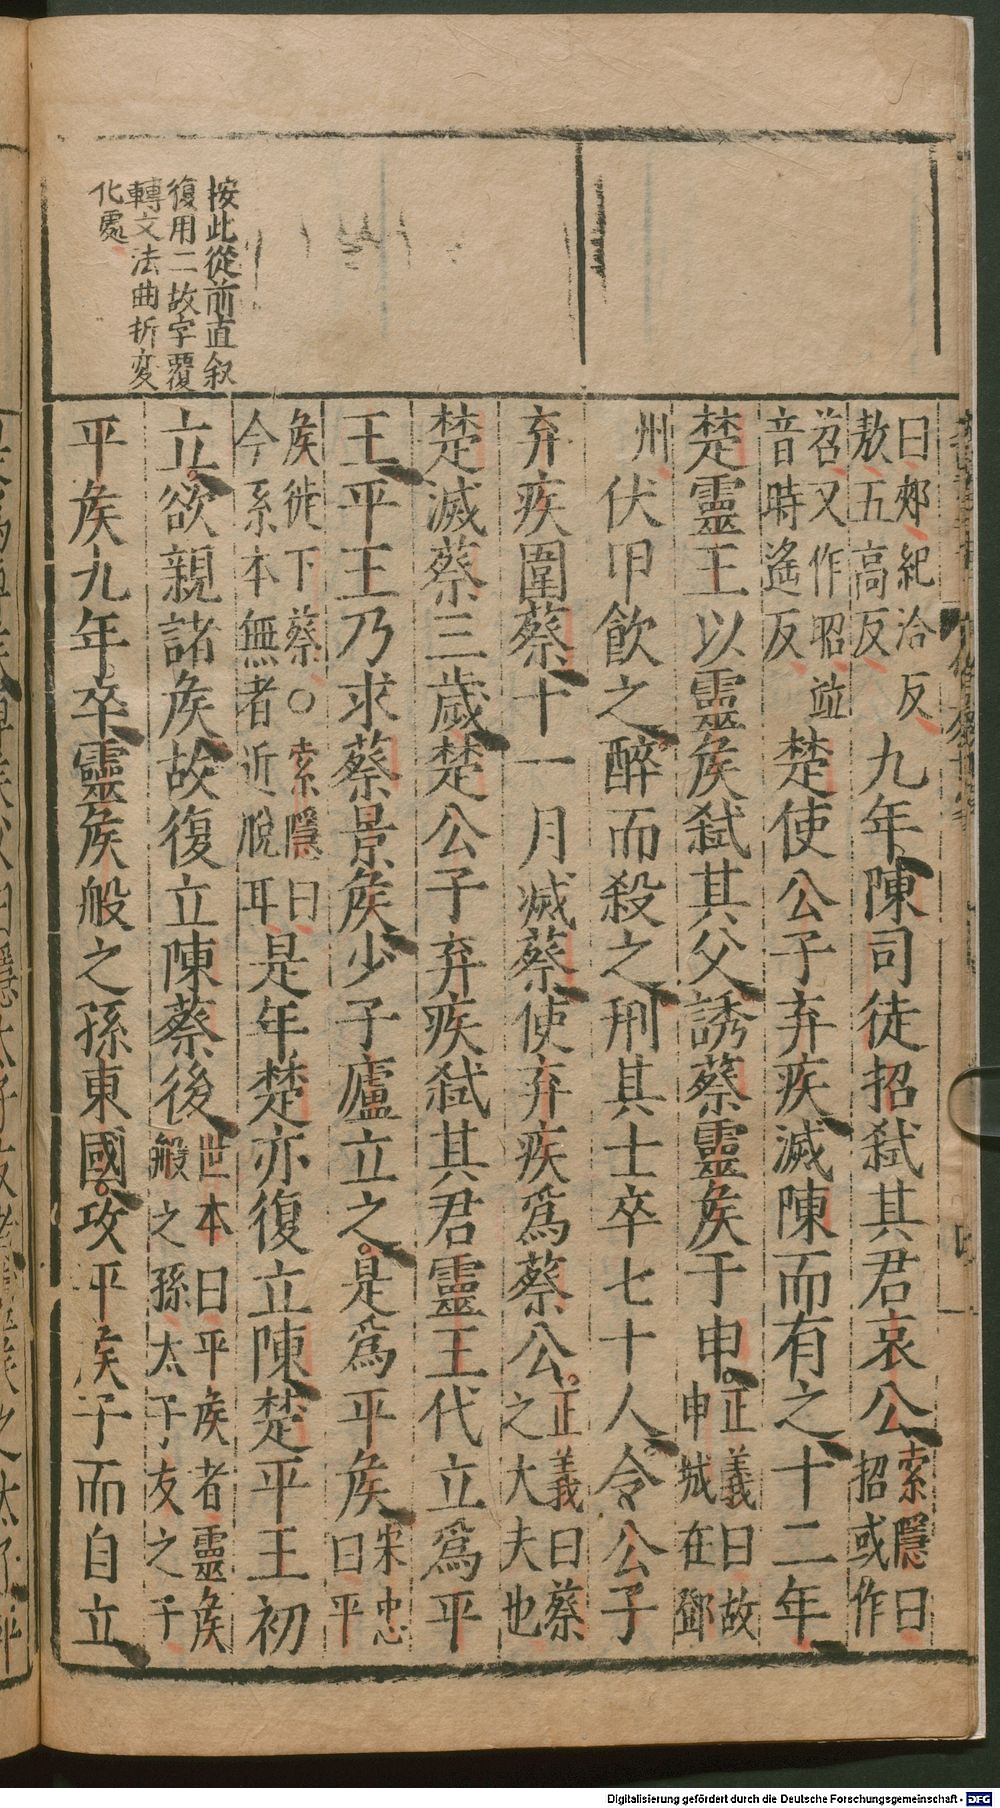 曰郟紀洽反敖五高反九年陳司徒招弒其君哀公索隱曰招或作
苕又作昭竝音時遙反楚使公子弃疾滅陳而有之十二年
楚靈王以靈矦弒其父誘蔡靈矦于申正義曰故申城在鄧
州伏甲飲之醉而殺之刑其士卒七十人令公子
弃疾圍蔡十一月滅蔡使弃疾爲蔡公正義曰蔡之大夫也
楚滅蔡三歲楚公子弃疾弒其君靈王代立爲平
王平王乃求蔡景矦少子廬立之是爲平矦宋忠曰平
矦徙下蔡○索隱曰今系本無者近脫耳是年楚亦復立陳楚平王初
立欲親諸矦故復立陳蔡後世本曰平矦者靈矦般之孫太子友之子
平矦九年卒靈矦般之孫東國攻平矦子而自立
按此從前直叙
復用二故字覆
轉文法曲折変
化處
Digitalisierung gefördert durch die Deutsche Forschungsgemeinschaft - DFG